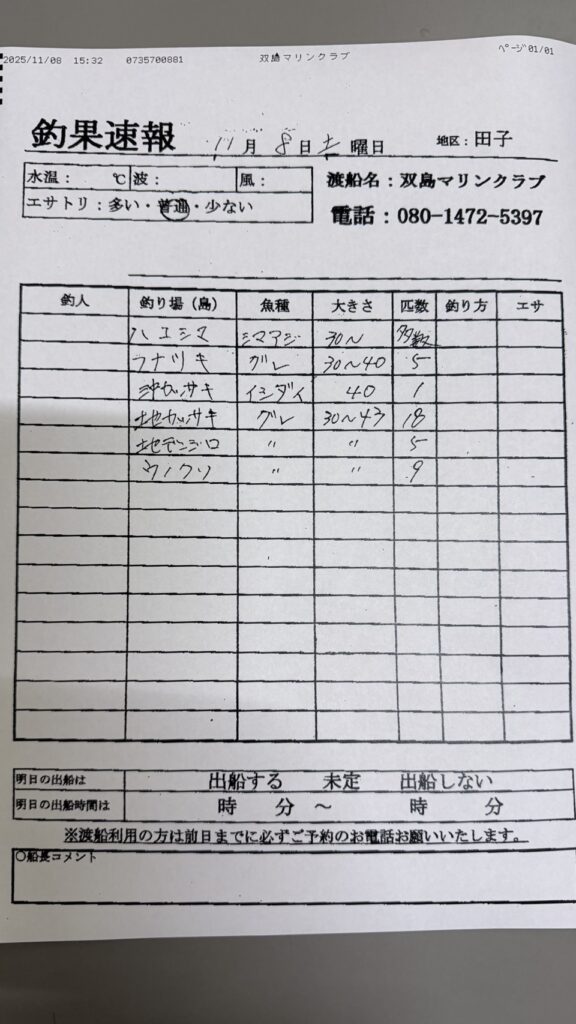 2025/11/08 15:32 0735700881 双島マリンクラブ ページ 01/01
釣果速報 11月 8日 土 曜日 地区：田子
水温： ℃ 波： 風： 渡船名：双島マリンクラブ
エサトリ：多い・普通・少ない 電話：080-1472-5397
釣人 釣り場（島） 魚種 大きさ 匹数 釣り方 エサ
ハエシマ シマアジ 30〜 多数
フナヅキ グレ 30〜40 5
沖カツサキ イシダイ 40 1
地カツサキ グレ 30〜43 18
地デンジロ 〃 〃 5
ウノクソ 〃 〃 9
明日の出船は 出船する 未定 出船しない
明日の出船時間は 時 分 〜 時 分
※渡船利用の方は前日までに必ずご予約のお電話お願いいたします。
○船長コメント